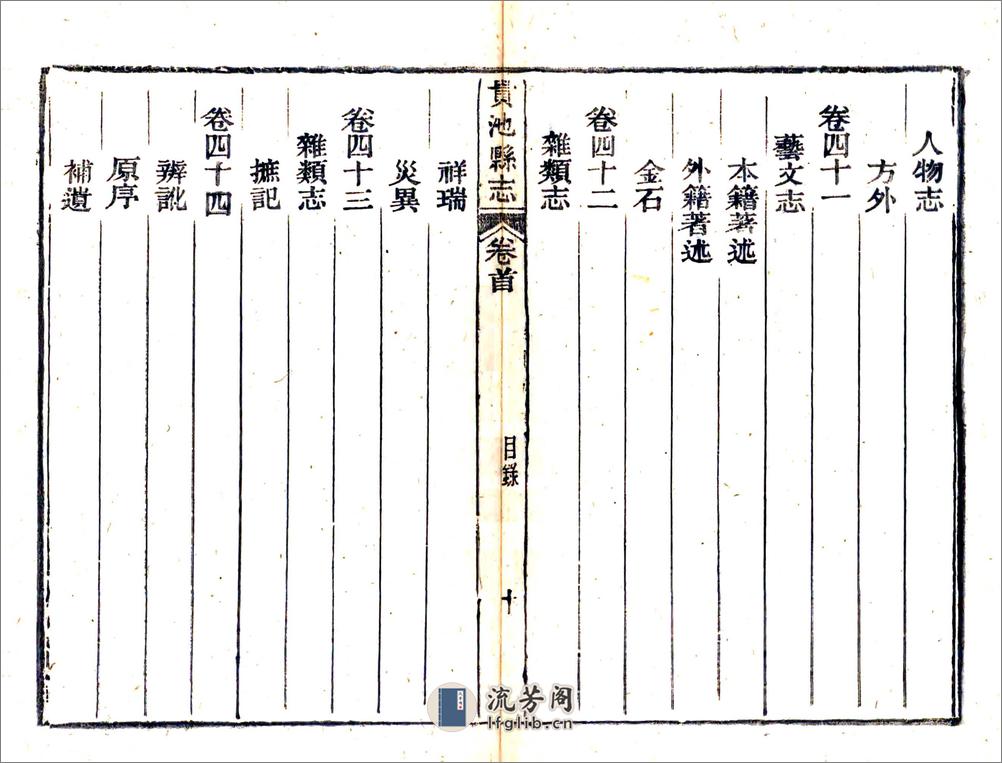 人物志
方外
卷四十一
藝文志
本籍著述
外籍著述
金石
卷四十二
雜類志
貴池縣志
卷首
目錄
十
祥瑞
災異
卷四十三
雜類志
摭記
卷四十四
辨訛
原序
補遺
流芳阁
lfglib.cn